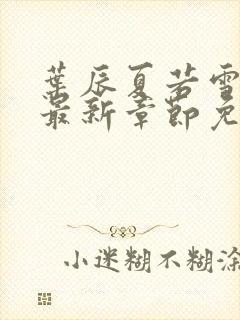 葉辰夏若雪
最新章節免
小迷糊不糊涂